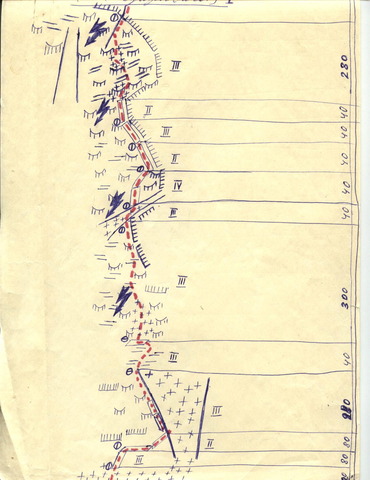 III
280
II
40
III
40
II
40
IV
40
II
40
III
300
III
40
III
280
II
80
III
80